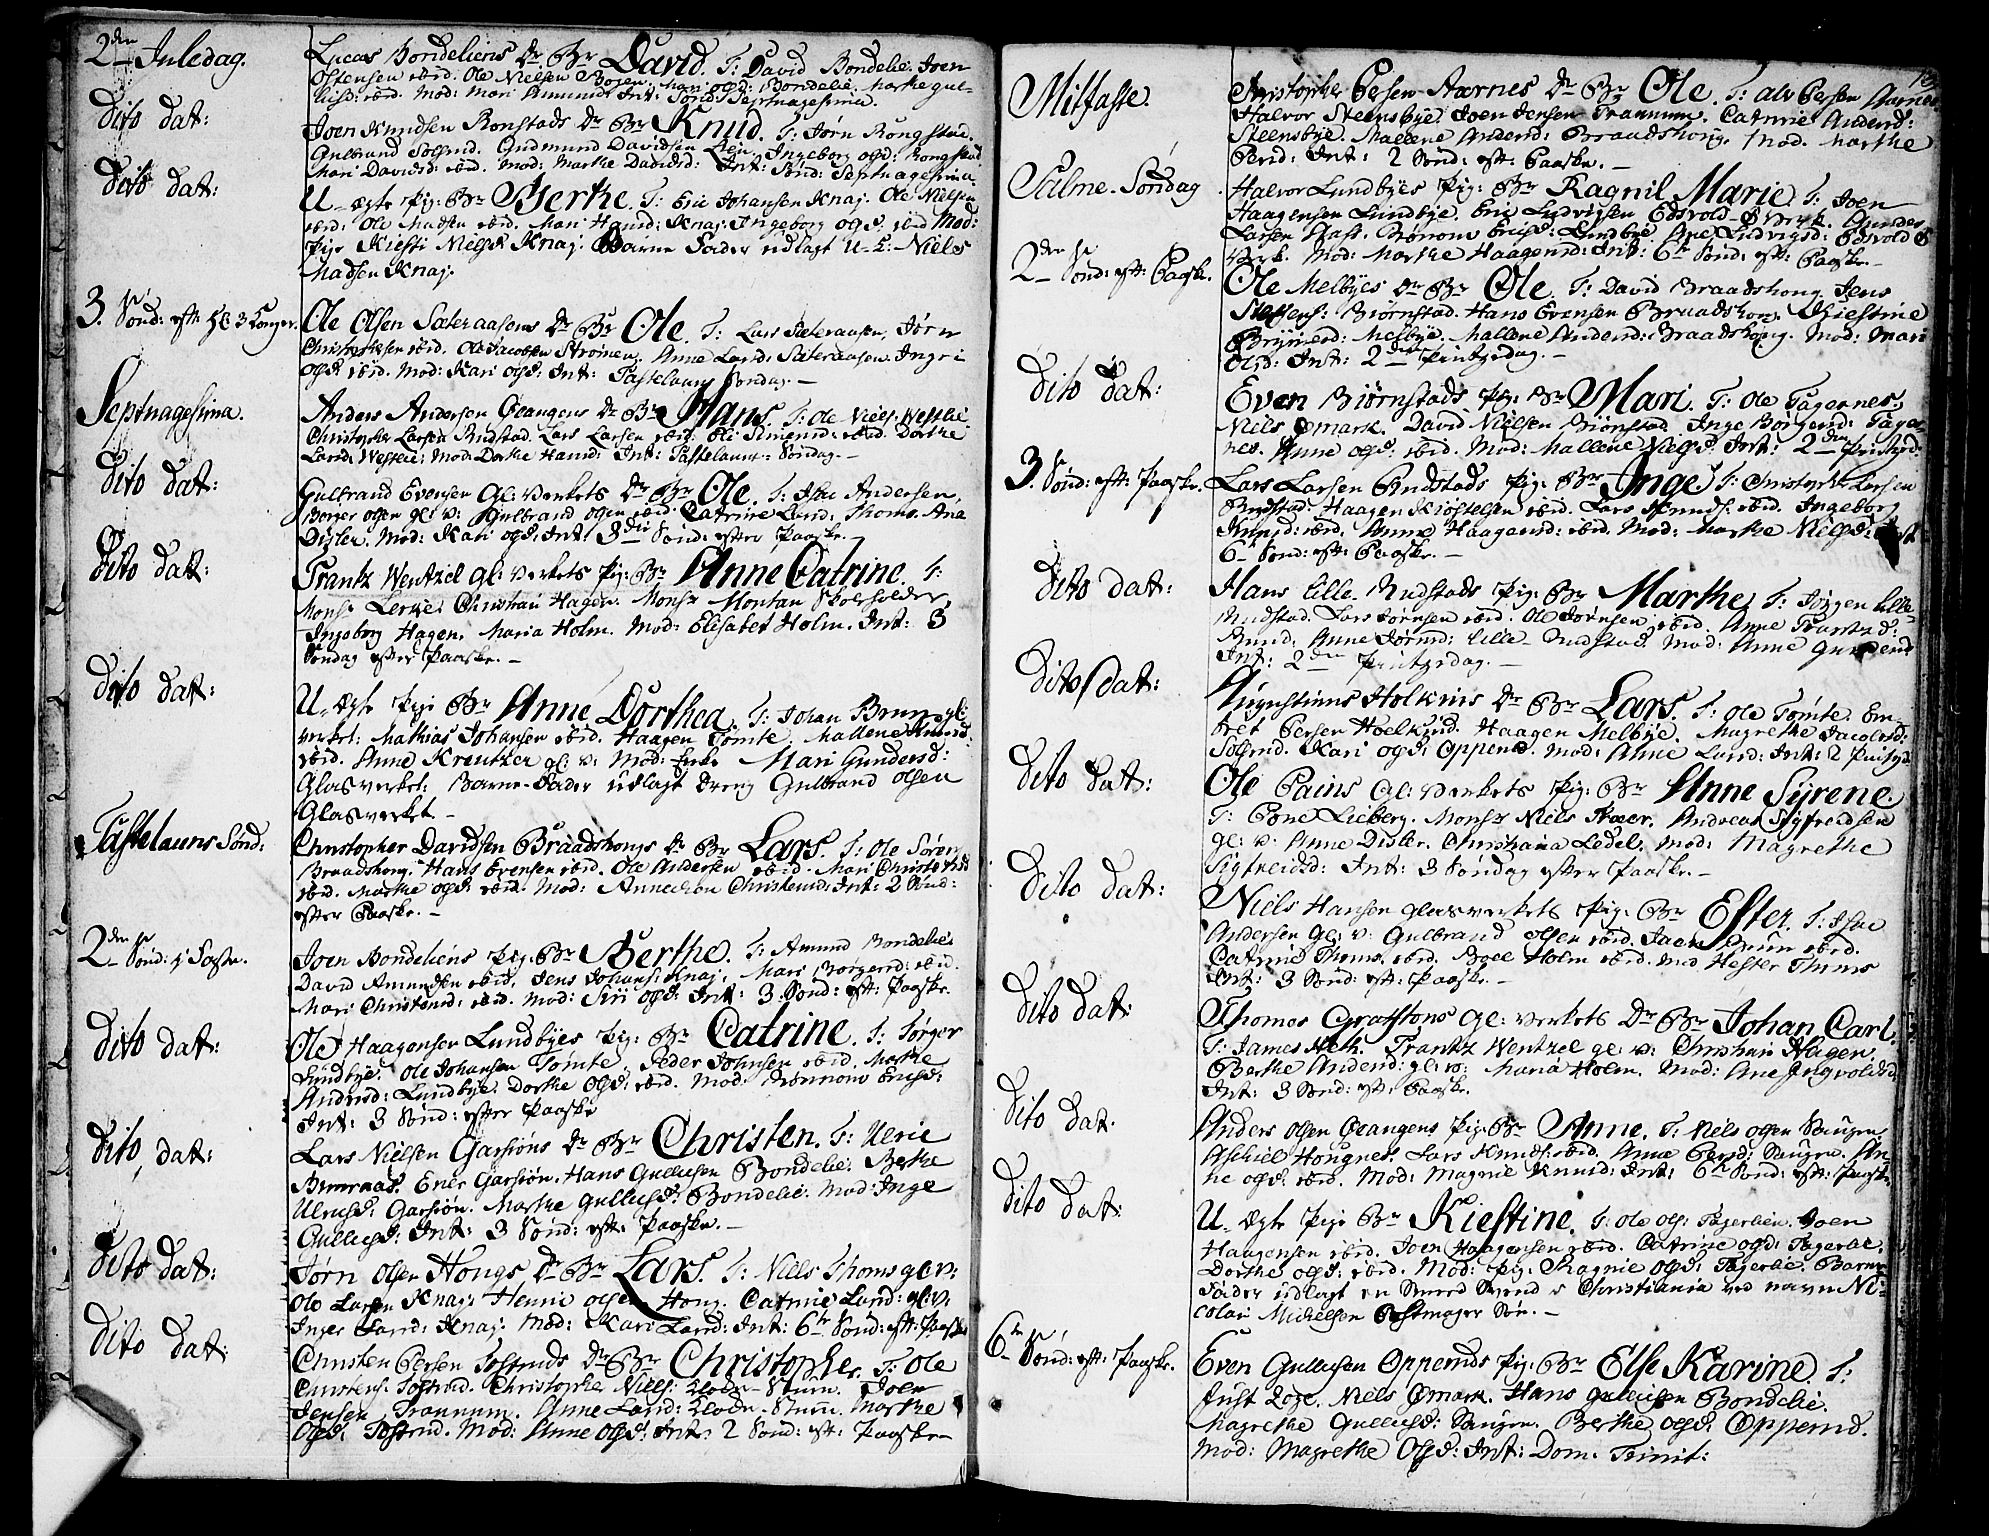 2den Juledag.
Lucas Bondeliens Dr: Br David. T: David Bondelie. Joen
Ostensen ibid. Ole Nielsen Bogen. Mari Olsd: Bondelie. Marthe Gul-
liksd: ibid. Mod: Mari Amunds: Int: Sønd: Septuagesima.
Dito dat:
Joen Knudsen Ronstads Dr Br Knud. T: Jørn Rongstad.
Gulbrand Solsrud. Gudmund Davidsen Lien. Ingeborg Olsd: Rongstad
Mari Davidsd: ibid. Mod: Marthe Davidsd: Int: Sønd: Septuagesima.
Dito dat:
U-ægte Pig: Br Berthe. T: Eric Johansen Knaj. Ole Nielsen
ibid: Ole Madsen ibid. Mari Hansd: Knaj. Ingeborg Olsd. ibid Mod:
Pige Kiesti Nielsd: Knaj. Barne Fader udlagt U-E: Niels
Madsen Knaj.
3. Sønd: eft: H 3 Konger.
Ole Olsen Sæteraasens Dr Br Ole. T: Lars Sæteraasen. Jørn
Christophersen ibid. Ole Jacobsen Strømen. Anne Larsd: Sæteraasen. Ingri
Olsd: ibid. Mod: Kari Olsd: Int: Fastelauns Søndag.—
Septuagesima.
Anders Andersen Grangens Dr Br Hans. T: Ole Niels: Westlie.
Christopher Larsen Rudstad. Lars Larsen ibid: Eli Simensd: ibid. Dorthe
Larsd: Westlie: Mod: Dorthe Hansd: Int: Fastelauns: Søndag.—
Dito dat:
Gulbrand Evensen Gl: Verkets Dr Br Ole. T: Isac Andersen,
Børger Olsen gl: v: Gulbrand Olsen ibid: Catrine Larsd: Thoms. Ana
Disler. Mod: Kari Olsd: Int: 3die Sønd: efter Paaske.—
Dito dat:
Frantz Wentzel Gl: Verkets Pig: Br Anne Catrine. T:
Monsr Lerche. Christian Hagen. Monsr Montan Skoleholder,
Ingeborg Hagen. Maria Holm. Mod: Elisabet Holm. Int: 3
Søndag efter Paaske.—
Dito dat:
U-ægte Pige Br Anne Dorthea. T: Johan Brun gl:
verket: Mathias Johansen ibid. Haagen Tømte. Mallene Amundsd:
ibid. Anne Kreutzer gl: v: Mod: Enke Mari Gundersd:
Glasverket: Barne-Fader udlagt Dreng Gulbrand Olsen
Glasverket—
Fastelauns Sønd:
Christopher Davidsen Braadshougs Dr Br Lars. T: Ole Sørensen
Braadshoug. Hans Evensen ibid. Ole Andersen ibid. Mari Christensd
ibid. Marthe Olsd: ibid. Mod: Christensd: Int: 2 Sønd:
efter Paaske.—
2den Sønd: i Faste.
Joen Bondeliens Pig: Br Berthe. T: Amund Bondelie.
David Amundsen ibid. Jens Johans: Knaj. Mari Børgersd: ibid.
Mari Christensd: ibid. Mod: Siri Olsd: Int: 3 Sønd: eft: Paaske.
Dito dat:
Ole Haagensen Lundbyes Pig: Br Catrine. T: Jørgen
Lundbye. Ole Johansen Tømte. Peder Johnsen ibid. Marthe
Andersd: Lundbye. Dorthe Olsd: ibid. Mod: Rønnow Ericsd:
Int: 3 Sønd: efter Paaske
Dito dat:
Lars Nielsen Garsiøns Dr Br Christen. T: Ulric
Bureraas. Ener Garsiøn. Hans Gulliksen Bondelie. Berthe
Ulricsd: Garsiøn. Marthe Gulliksd: Bondelie. Mod: Inge
Gulliksd: Int: 3 Sønd: eft: Paaske.—
Dito dat:
Jørn Olsen Hougs Dr Br Lars. T: Niels Thoms gl: v:
Ole Larsen Knaj. Henric Olsen Houg. Catrine Larsd: gl: v:
Inger Larsd: Knaj. Mod: Kari Larsd: Int: 6te Sønd: eft: Paaske
Dito dat:
Christen Persen Fosseruds Dr Br Christopher. T: Ole
Christens: Fosserud. Christopher Niels: Stuen. Joen
Jensen Trannum. Anne Larsd: Stuen. Marthe
Olsd: Fosserud. Mod: Anne Olsd: Int: 2 Sønd: eft: Paaske—
Mitfaste.
Christopher Persen Aarnes Dr Br Ole. T: Alv Persen Aarnes
Halvor Steensbye. Joen Jensen Trannum. Catrine Andersd:
Steensbye. Mallene Andersd: Braadshoug. Mod. Marthe
Persd: Int: 2 Sønd: eft: Paaske.—
Palme-Søndag
Halvor Lundbyes Pig: Br Ragnil Marie. T: Joen
Haagensen Lundbye. Eric Ludvigsen Edsvold Verk. Gunder
Larsen Staff. Rønnow Ericsd: Lundbye. Ane Ludvigsd: Edsvold
Verk. Mod: Marthe Haagensd: Int: 6te Sønd: eft: Paaske.—
2den Sønd: eft: Paaske.
Ole Melbyes Dr Br Ole. T: David Braadshoug. Jens
Steffens: Biørnstad. Hans Evensen Braadshoug. Kiestine
Brynersd: Melbye. Mallene Andersd: Braadshoug. Mod: Mari
Olsd: Int: 2den Pintsedag.—
Dito dat:
Even Biørnstads Pig: Br Mari. T: Ole Fagernes.
Niels Ømark. David Nielsen Biørnstad. Inge Børgersd: Fager-
nes. Anne Olsd: ibid. Mod: Mallene Nielsd: Int: 2den Pintsed:
3. Sønd: eft: Paaske.
Lars Larsen Rudstads Pig: Br Inge. T: Christopher Larsen
Rudstad. Haagen Kiøstelsen ibid. Lars Knuds: ibid. Ingeborg
Knudsd: ibid. Anne Haagensd: ibid. Mod: Marthe Nielsd: Int:
6te Sønd: eft: Paaske.—
Dito dat:
Hans Lille-Rudstads Pig: Br Marthe. T: Jørgen Lille-
Rudstad. Lars Jørnsen ibid. Ole Jørnsen ibid. Anne Frantzd:
Rund. Anne Jørnsd: Lille-Rudstad. Mod: Anne Gundersd:
Int: 2den Pintsedag.—
Dito dat:
Augustinus Holkins Dr Br Lars. T: Ole Tømte. Em-
bret Persen Hoelkind. Haagen Melbye. Magrethe Jacobsd:
Solsrud. Kari Olsd: Oppend. Mod: Anne Larsd: Int: 2 Pintsd:
Dito dat:
Ole Pains Gl: Verkets Pig: Br Anne Syrene.
T: Lieberg. Monsr Niels Aaser. Andreas Sigfreidsen
gl: v: Anne Disler. Christiana Ledel. Mod: Magrethe
Sigfreidsd: Int: 3 Søndag efter Paaske.—
Dito dat:
Niels Hansen Glasverkets Pig: Br Ester. T: Isac
Andersen Gl: v: Gulbrand Olsen ibid. Joen ibid.
Catrine Thoms. ibid. Boel Holm ibid. Mod Hester Thoms
Int: 3 Sønd: eft: Paaske.—
Dito dat:
Thomas Graftons Gl: Verkets Dr Br Johan Carl.
T: James Keth. Frantz Wentzel gl: v: Christian Hagen.
Berthe Andersd: gl: v: Maria Holm. Mod: Ane Ingvoldsd:
Int: 3 Sønd: eft: Paaske.
Dito dat.
Anders Olsen Grangens Pig: Br Anne. T: Niels Olsen Saugen.
Aschiel Hougnes. Lars Knuds: ibid. Anne Persd: Saugen. An-
ne Olsd: ibid. Mod: Magnil Knudsd: Int: 6te Sønd: eft: Paaske.
Dito dat:
U-ægte Pige Br Kiestine. T: Ole Ols: Fagerlien. Joen
Haagensen ibid. Joen Haagensen ibid. Catrine Olsd: Fagerlie.
Dorthe Olsd: ibid. Mod: Pig: Ragnil Olsd: Fagerlie. Barne
Fader udlagt en Smeed Svend i Christiania ved navn Ni-
colai Michelsen Postmager Søn.—
6te Sønd: eft: Paaske.
Even Gullicsen Oppends Pig: Br Else Karine. T:
Just Loze. Niels Ømark. Hans Gullicsen Bondelie.
Magrethe Gulliksd: Saugen. Berthe Olsd: Oppend.
Mod: Magrethe Olsd: Int: Dom: Trinit: